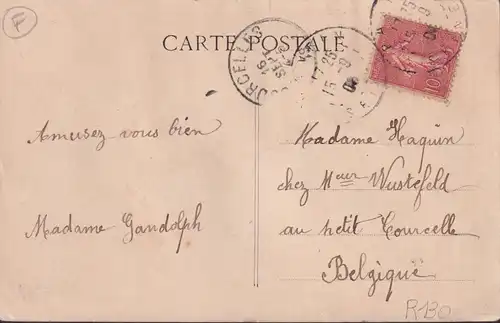 F
CARTE POSTALE
COURCELLES
16
SEPT
10
Amusez-vous bien
Madame Gandolph
Madame Haquin
chez Meur Wustefeld
au petit Courcelle
Belgique
R130